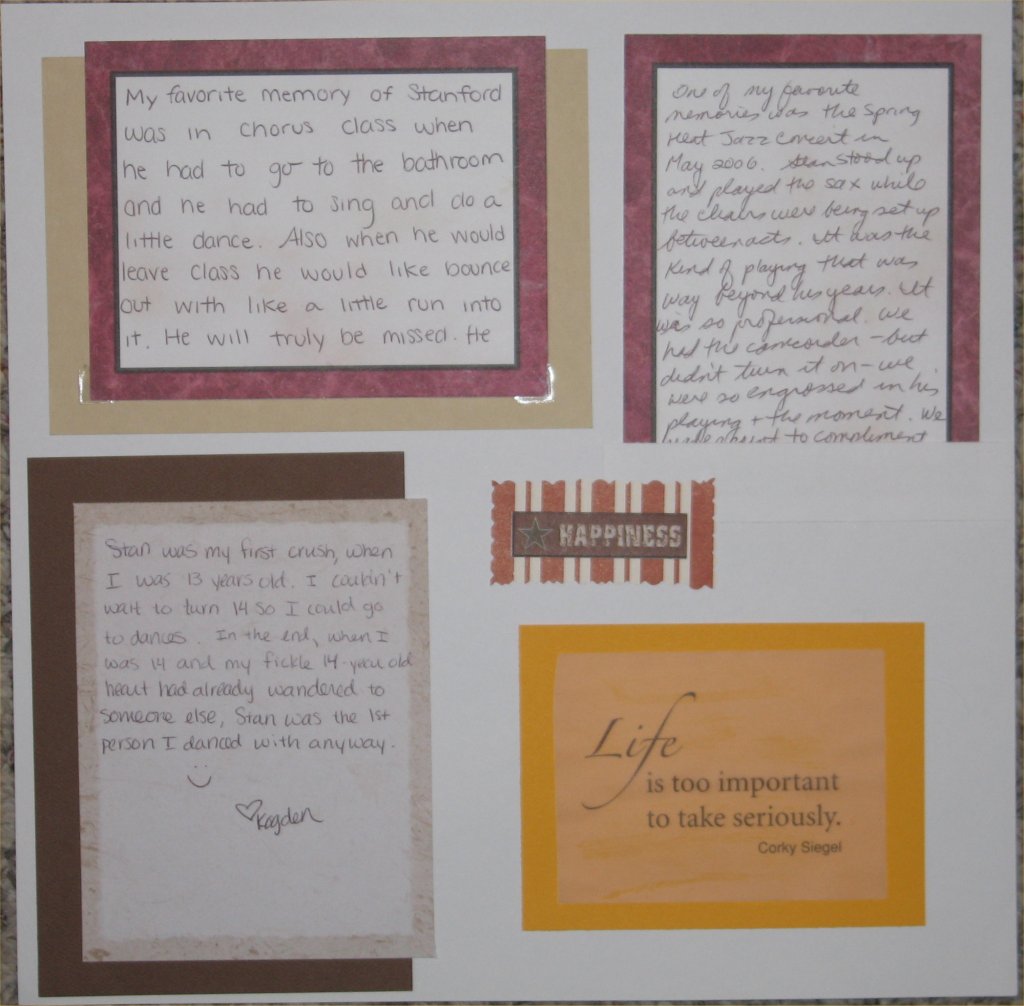 My favorite memory of Stanford
was in chorus class when
he had to go to the bathroom
and he had to sing and do a
little dance. Also when he would
leave class he would like bounce
out with like a little run into
it. He will truly be missed. He
One of my favorite
memories was the Spring
Heat Jazz Concert in
May 2006. Stan stood up
and played the sax while
the chairs were being set up
between acts. It was the
kind of playing that was
way beyond his years. It
was so professional. We
had the camcorder - but
didn't turn it on - we
were so engrossed in his
playing + the moment. We
to compliment
Stan was my first crush, when
I was 13 years old. I couldn't
wait to turn 14 so I could go
to dances. In the end, when I
was 14 and my fickle 14-year old
heart had already wandered to
someone else, Stan was the 1st
person I danced with anyway.
Kagden
HAPPINESS
Life
is too important
to take seriously.
Corky Siegel